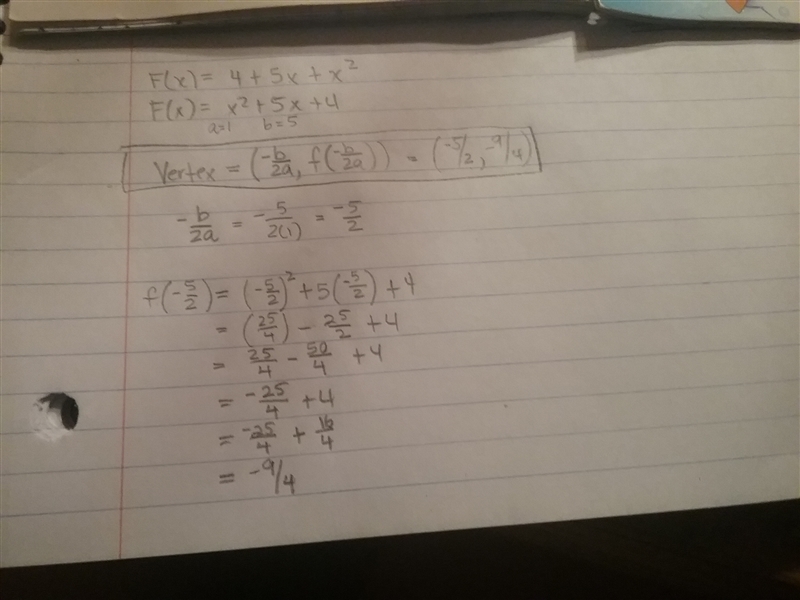 F(x) = 4 + 5x + x²
F(x) = x² + 5x + 4
a=1 b=5
Vertex = (-b/2a, f(-b/2a)) = (-5/2, -9/4)
-b/2a = -5/2(1) = -5/2
f(-5/2) = (-5/2)² + 5(-5/2) + 4
= (25/4) - 25/2 + 4
= 25/4 - 50/4 + 4
= -25/4 + 4
= -25/4 + 16/4
= -9/4